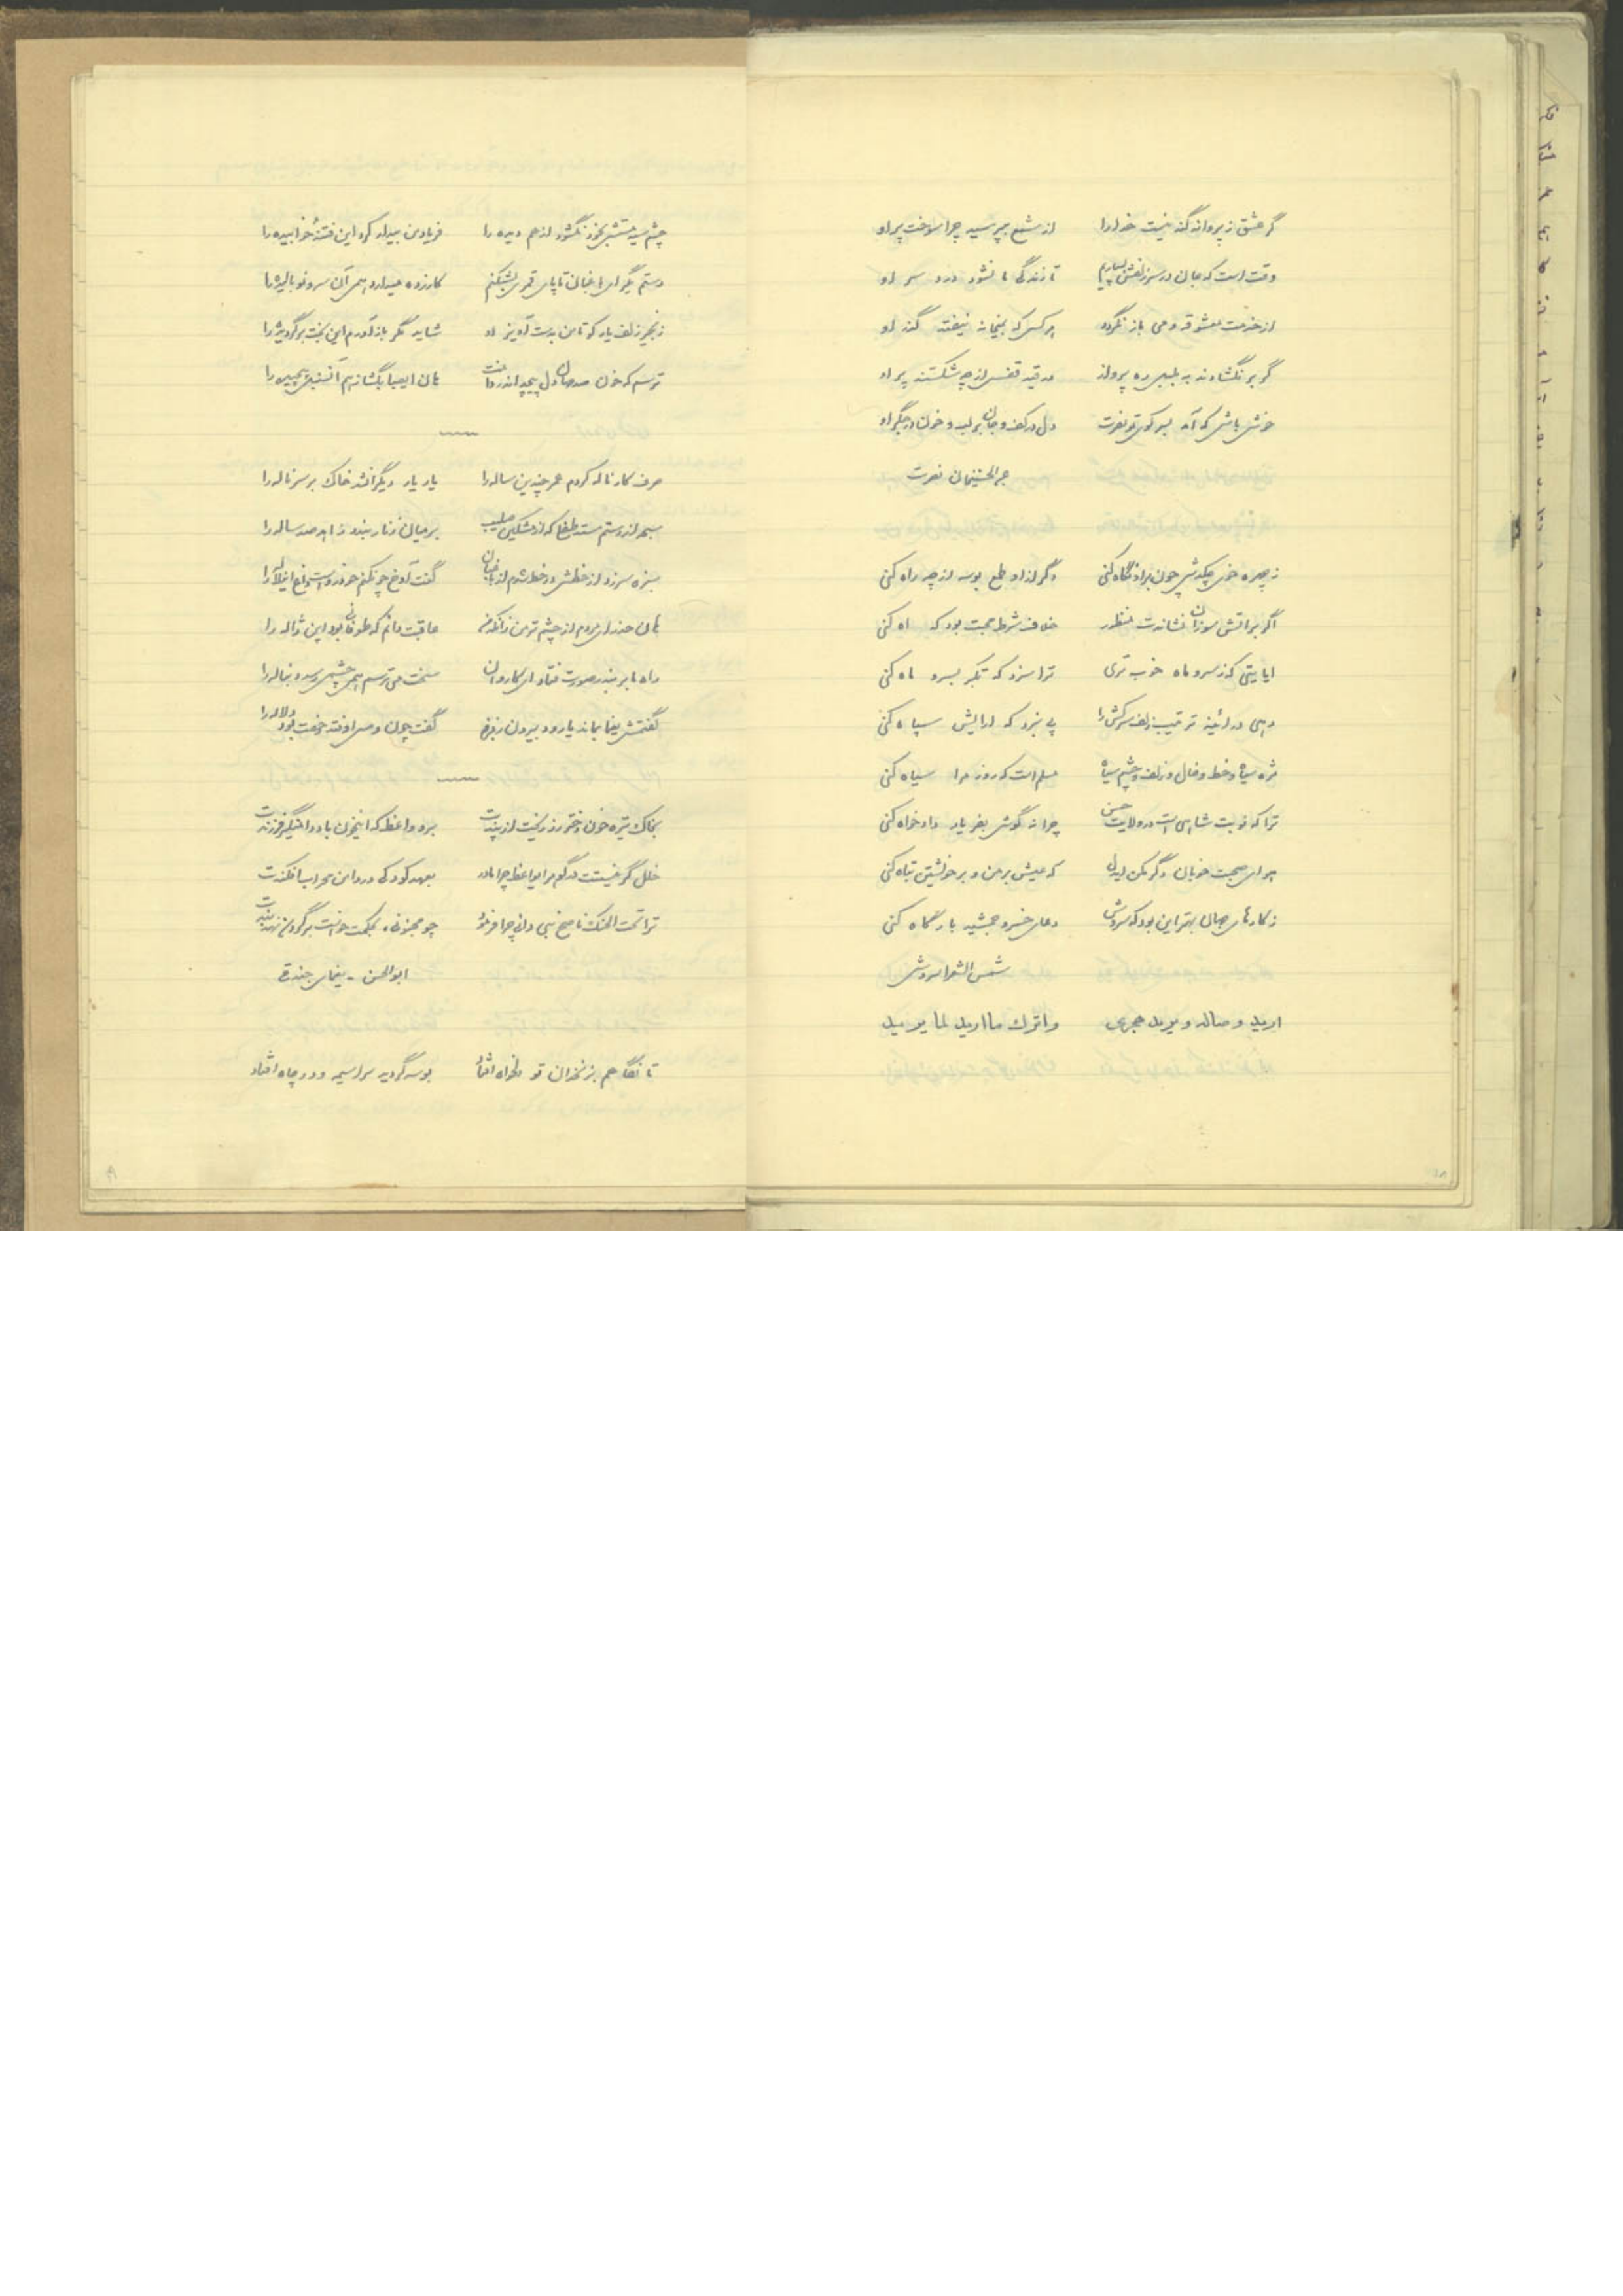 گر عشق ز پروانه گنه نیست خدا را از شمع بپرسید چرا سوخت پر او
وقت است که جان در سر زلفش بسپاریم تا زندگی ما نشود درد سر او
از خدمت معشوقه و می باز نگردد هر کس که بمیخانه نیفتد گذر او
گر بر نگشادند به بلبل ره پرواز در قید قفس از چه شکستند پر او
خوش باش که آمد بسر کوی تو نصرت دل در کف و جان بر لب و خون در جگر او
نصرت
ز چهره خوی چکدش چون بر او نگاه کنی دگر از او طمع بوسه از چه راه کنی
اگر بر آتش سوزان نشاندت منظور خلاف شرط محبت بود که اه کنی
ایا بتی که ز سرو و ماه خوب تری ترا سزد که تکبر بسرو و ماه کنی
دهی در آئینه ترتیب زلف سرکش را پی نبرد که آرایش سپاه کنی
مژه سیاه و خط و خال و زلف و چشم سیاه مسلم است که روز مرا سیاه کنی
ترا که نوبت شاهی است در ولایت حسن چرا نه گوش بفریاد دادخواه کنی
هوای صحبت خوبان دگر مکن ایدل که عیش بر من و بر خویشتن تباه کنی
ز کارهای جهان بهتر این بود که سروش دعای خسرو جمشید بارگاه کنی
شمس الشعرا سروش
ارید وصاله و یرید هجری واترک ما ارید لما یرید
۱۸
چشم سیه مستش بخود نگشود از هم دیده را فریاد من بیدار کرد این فتنهٔ خوابیده را
دستم بگیر ای باغبان تا پای قمری بشکنم کازرده میدارد همی آن سرو نو بالیده را
زنجیر زلف یار کو تا من بدست آویز او شاید مگر باز آورم این بخت برگردیده را
ترسم که خون صد جهان دل پیچد اندر دامنت هان ای صبا بگشا ز هم آن سنبل پیچیده را
صرف کار ناله کردم عمر چندین ساله را یار یار دیگران شد خاک بر سر ناله را
سبحه از دستم ستد طفلی که از مشکین صلیب بر میان زنار بندد زاهد صد ساله را
سبزه سر زد از خطش در خط شدم از باغبان گفت آوخ چون کنم
هان حذر ای مردم از چشم تر من زانکه من عاقبت دانم که طوفانی بود این ژاله را
راه ما بر بندر صورت فتاد ای کاروان سخت می ترسم
گفتمش یغما بماند یا رود بیرون ز بزم گفت چون وصل اوفتد زحمت بود دلاله را
بخاک تیره خون دختر رز ریخت از پندت برو واعظ که این خون باد دامنگیر فرزندت
خلل گر نیستت در گوهر ای واعظ چرا مادر بعهد کودکی در دامن محراب افکندت
ترا تحت الحنک ناصح نمی دانی چرا فرمود چو مجنونی بحکمت خواست بر گردن نهد بندت
ابوالحسن - یغمای جندقی
تا نگاهم بزنخدان تو دلخواه افتاد بوسه گردید سراسیمه و در چاه افتاد
۹